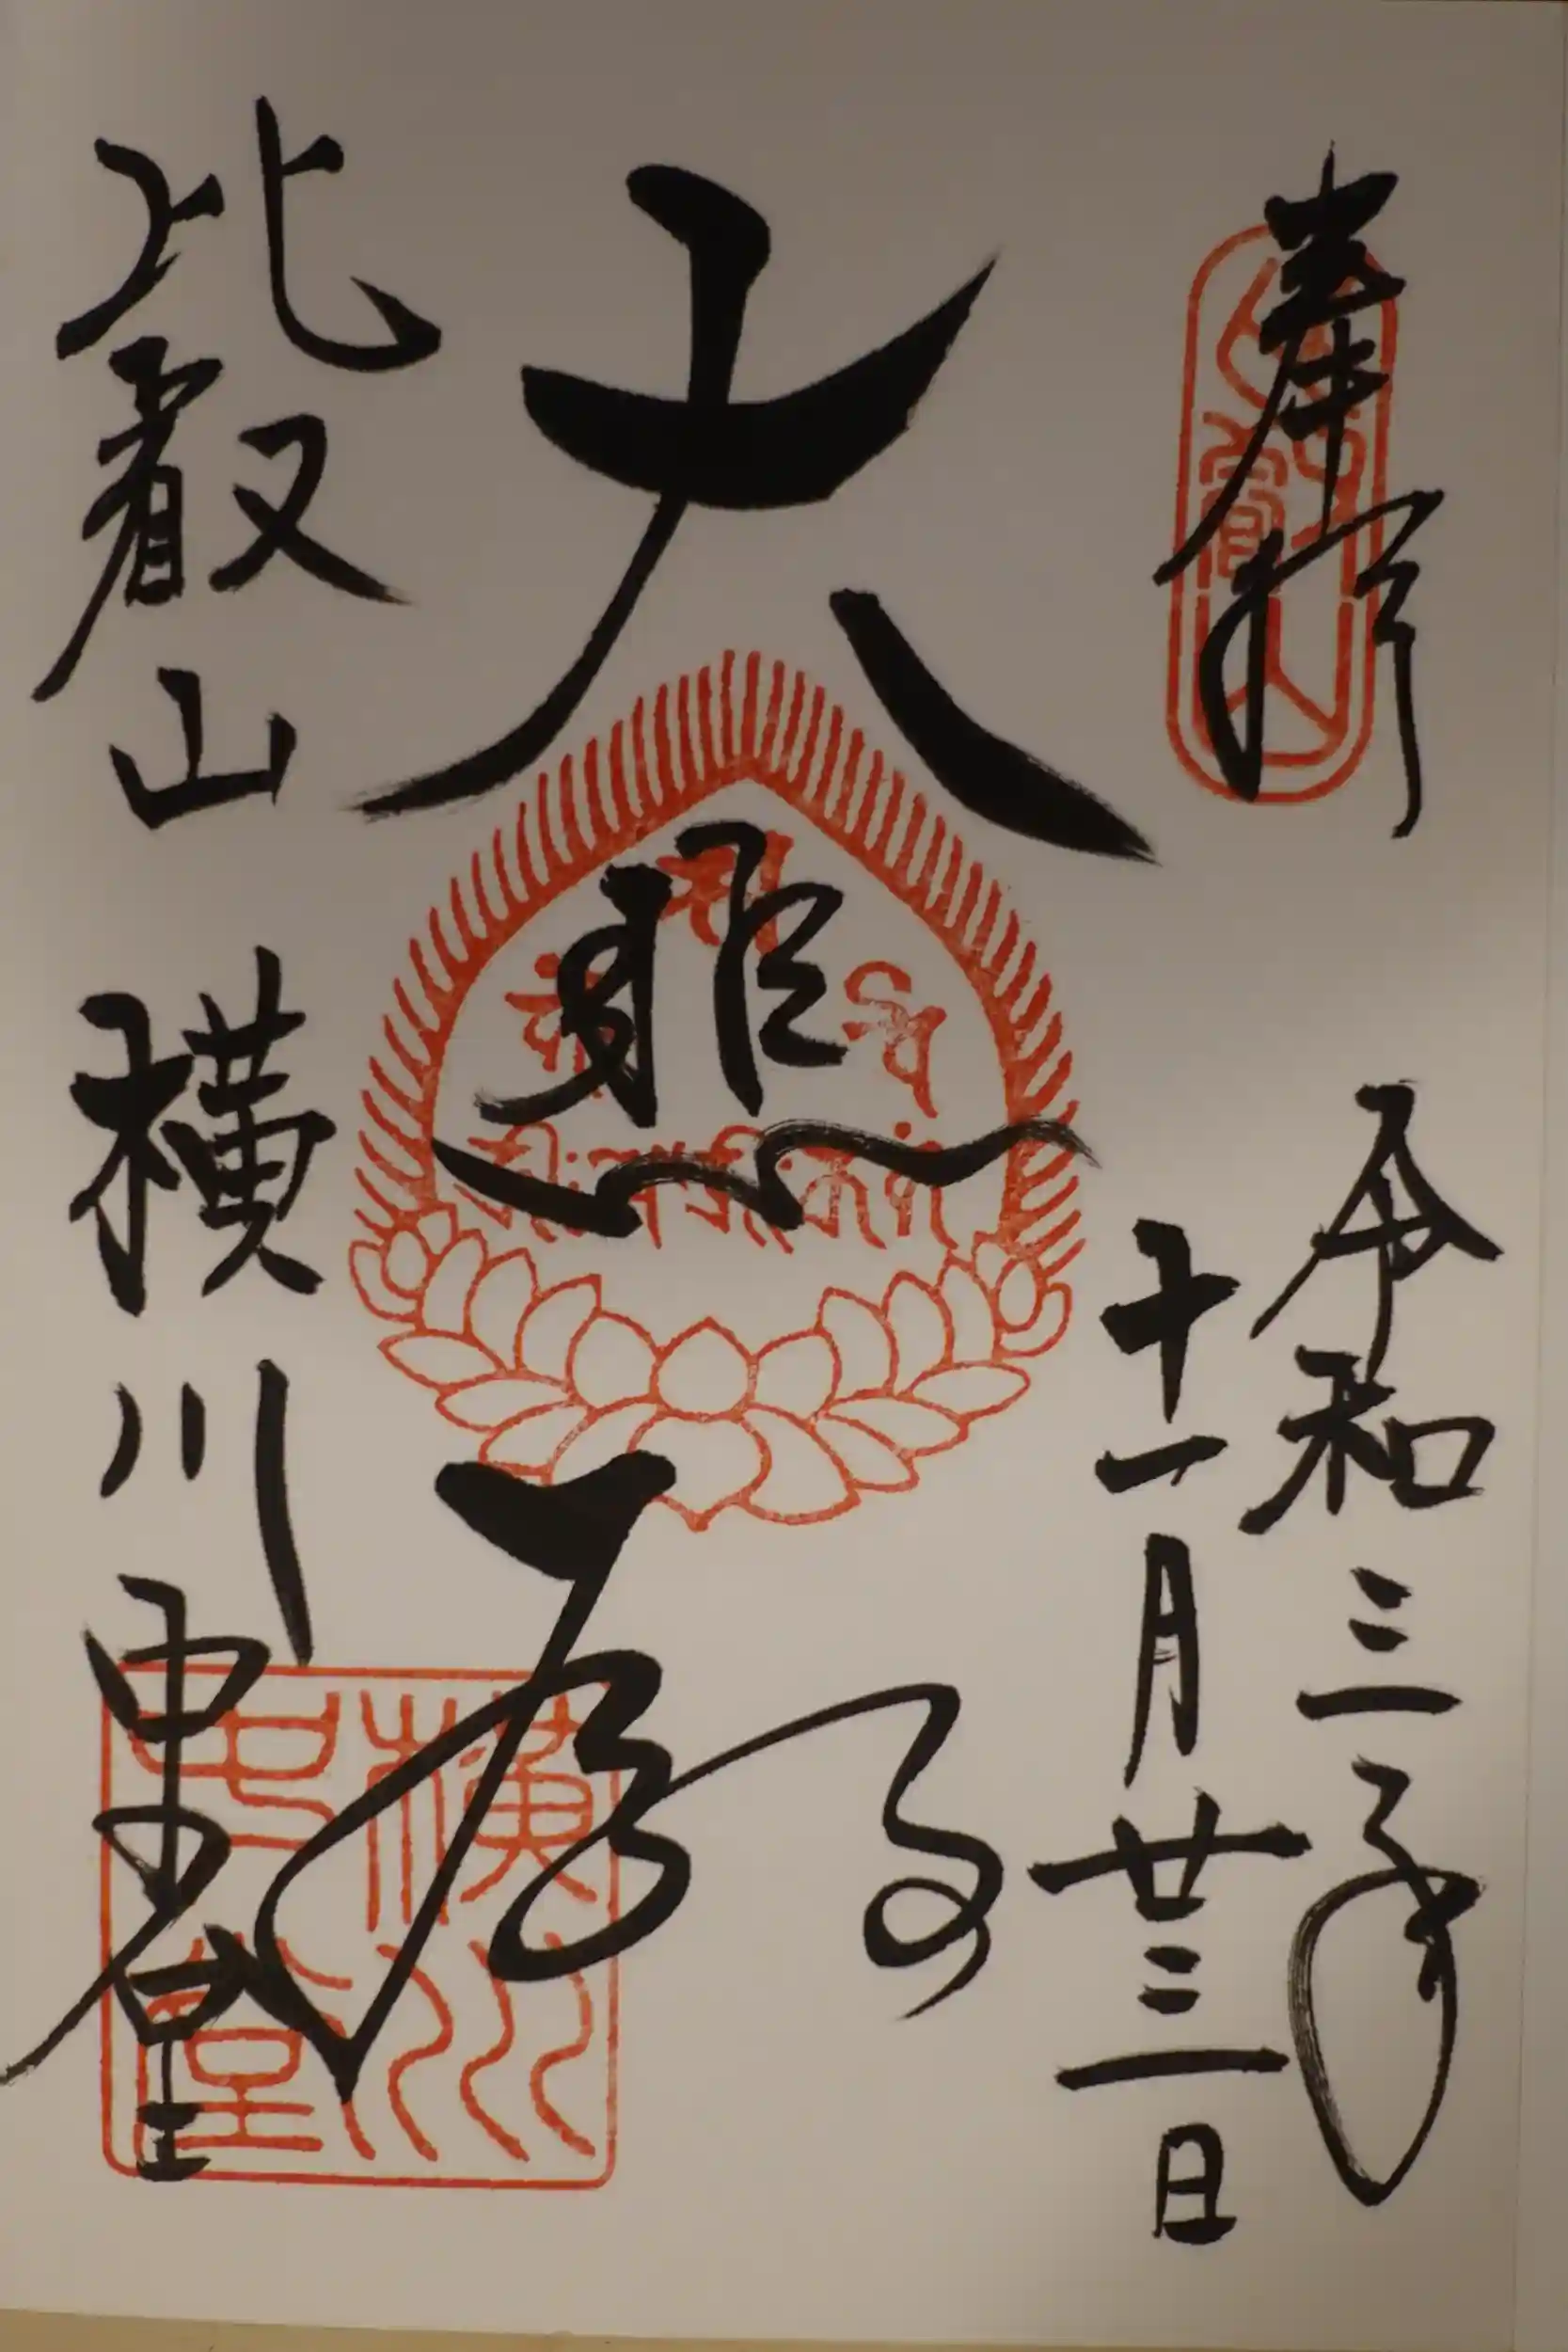 奉拝
令和三年
十一月廿三日
大悲殿
比叡山 横川中堂
比叡山
横川
中堂